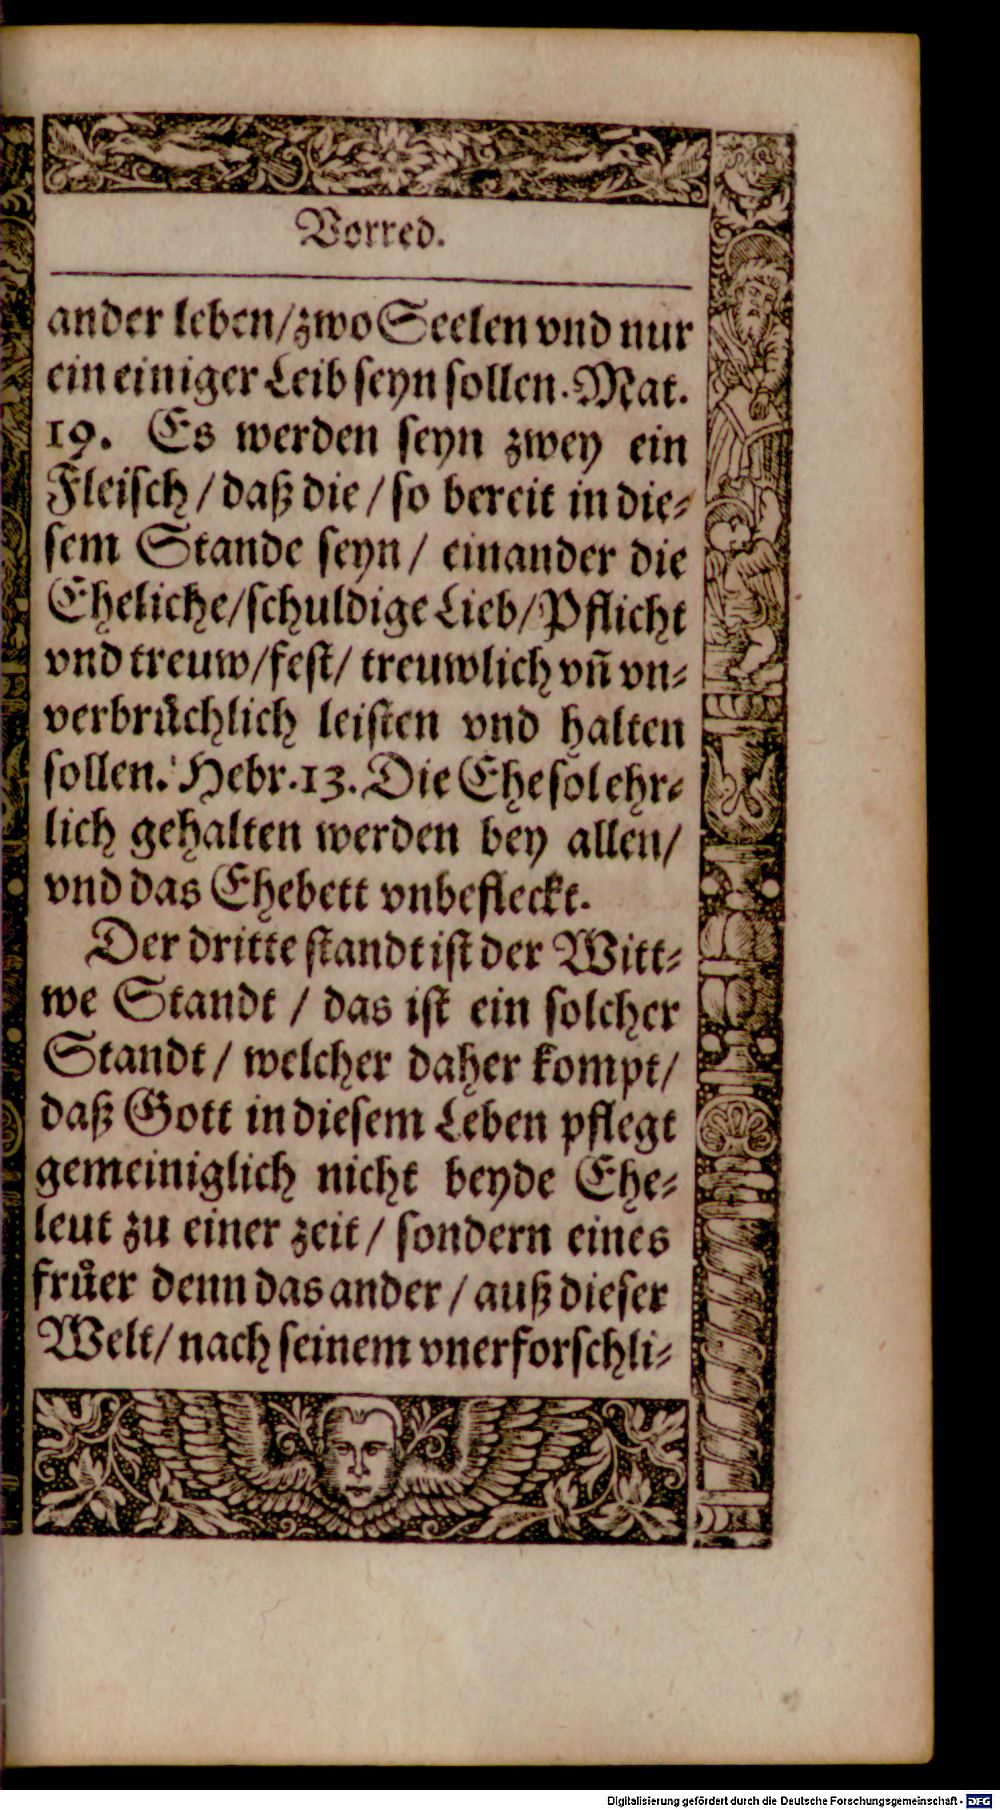 Vorred.
ander leben/zwo Seelen vnd nur
ein einiger Leib seyn sollen. Mat.
19. Es werden seyn zwey ein
Fleisch / daß die / so bereit in die⸗
sem Stande seyn / einander die
Eheliche/schuldige Lieb/Pflicht
vnd treuw/fest/ treuwlich vn̄ vn⸗
verbrůchlich leisten vnd halten
sollen. Hebr. 13. Die Ehe sol ehr⸗
lich gehalten werden bey allen/
vnd das Ehebett vnbefleckt.
Der dritte standt ist der Witt⸗
we Standt / das ist ein solcher
Standt / welcher daher kompt/
daß Gott in diesem Leben pflegt
gemeiniglich nicht beyde Ehe⸗
leut zu einer zeit / sondern eines
frůer denn das ander / auß dieser
Welt/ nach seinem vnerforschli⸗
Digitalisierung gefördert durch die Deutsche Forschungsgemeinschaft - DFG